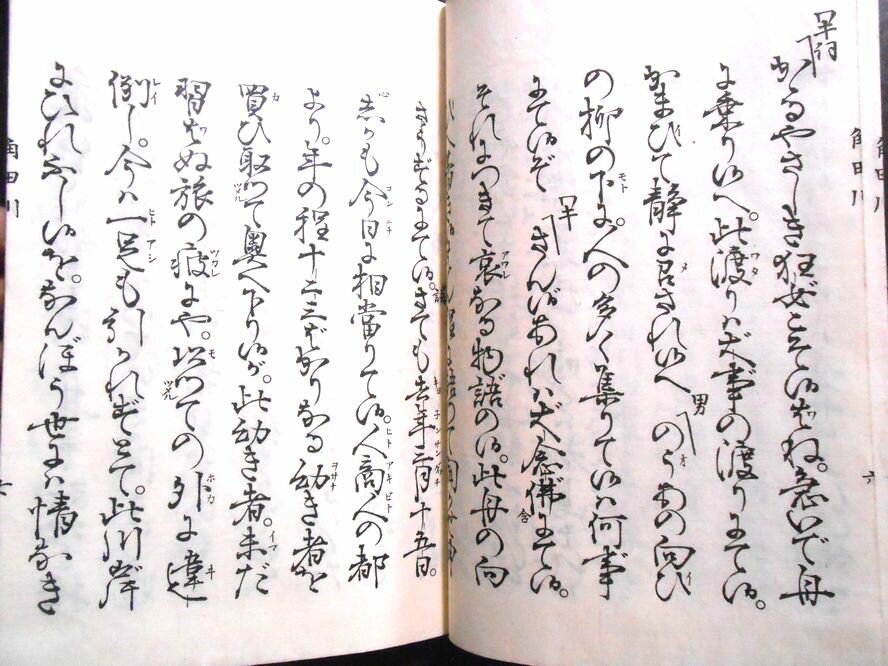 角田川 六
早詞
かるやさしき狂女こそ候はね。急いで舟
に乗り候へ。此渡りは大事の渡りにて候。
かまひて静に召され候へ 男 のうあの向ひ
の柳の下に。人の多く集りて候は何事
にて候ぞ 早 さん候あれは大念佛にて候。
それにつきて哀なる物語の候。此舟の向
さうずるにて候。語 さても去年三月十五日。
しかも今日に相當りて候。人商人の都
より。年の程十二三ばかりなる幼き者を
買ひ取つて奥へ下り候が。此幼き者。未だ
習はぬ旅の疲にや。以つての外に違
例し。今は一足も引かれずとて。此川岸
にひれふし候を。なんぼう世には情なき
角田川